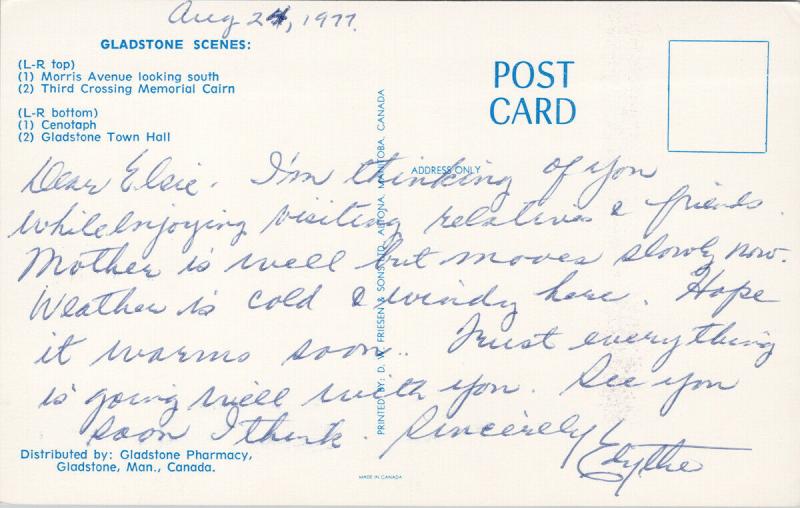 Aug 24, 1977.
GLADSTONE SCENES:
(L-R top)
(1) Morris Avenue looking south
(2) Third Crossing Memorial Cairn
(L-R bottom)
(1) Cenotaph
(2) Gladstone Town Hall
POST
CARD
ADDRESS ONLY
PRINTED BY: D. W. FRIESEN & SONS LTD. ALTONA, MANITOBA, CANADA
Dear Elsie. I'm thinking of you
while enjoying visiting relatives & friends.
Mother is well but moves slowly now.
Weather is cold & windy here. Hope
it warms soon. Trust everything
is going well with you. See you
soon I think. Sincerely
Edythe
Distributed by: Gladstone Pharmacy,
Gladstone, Man., Canada.
MADE IN CANADA